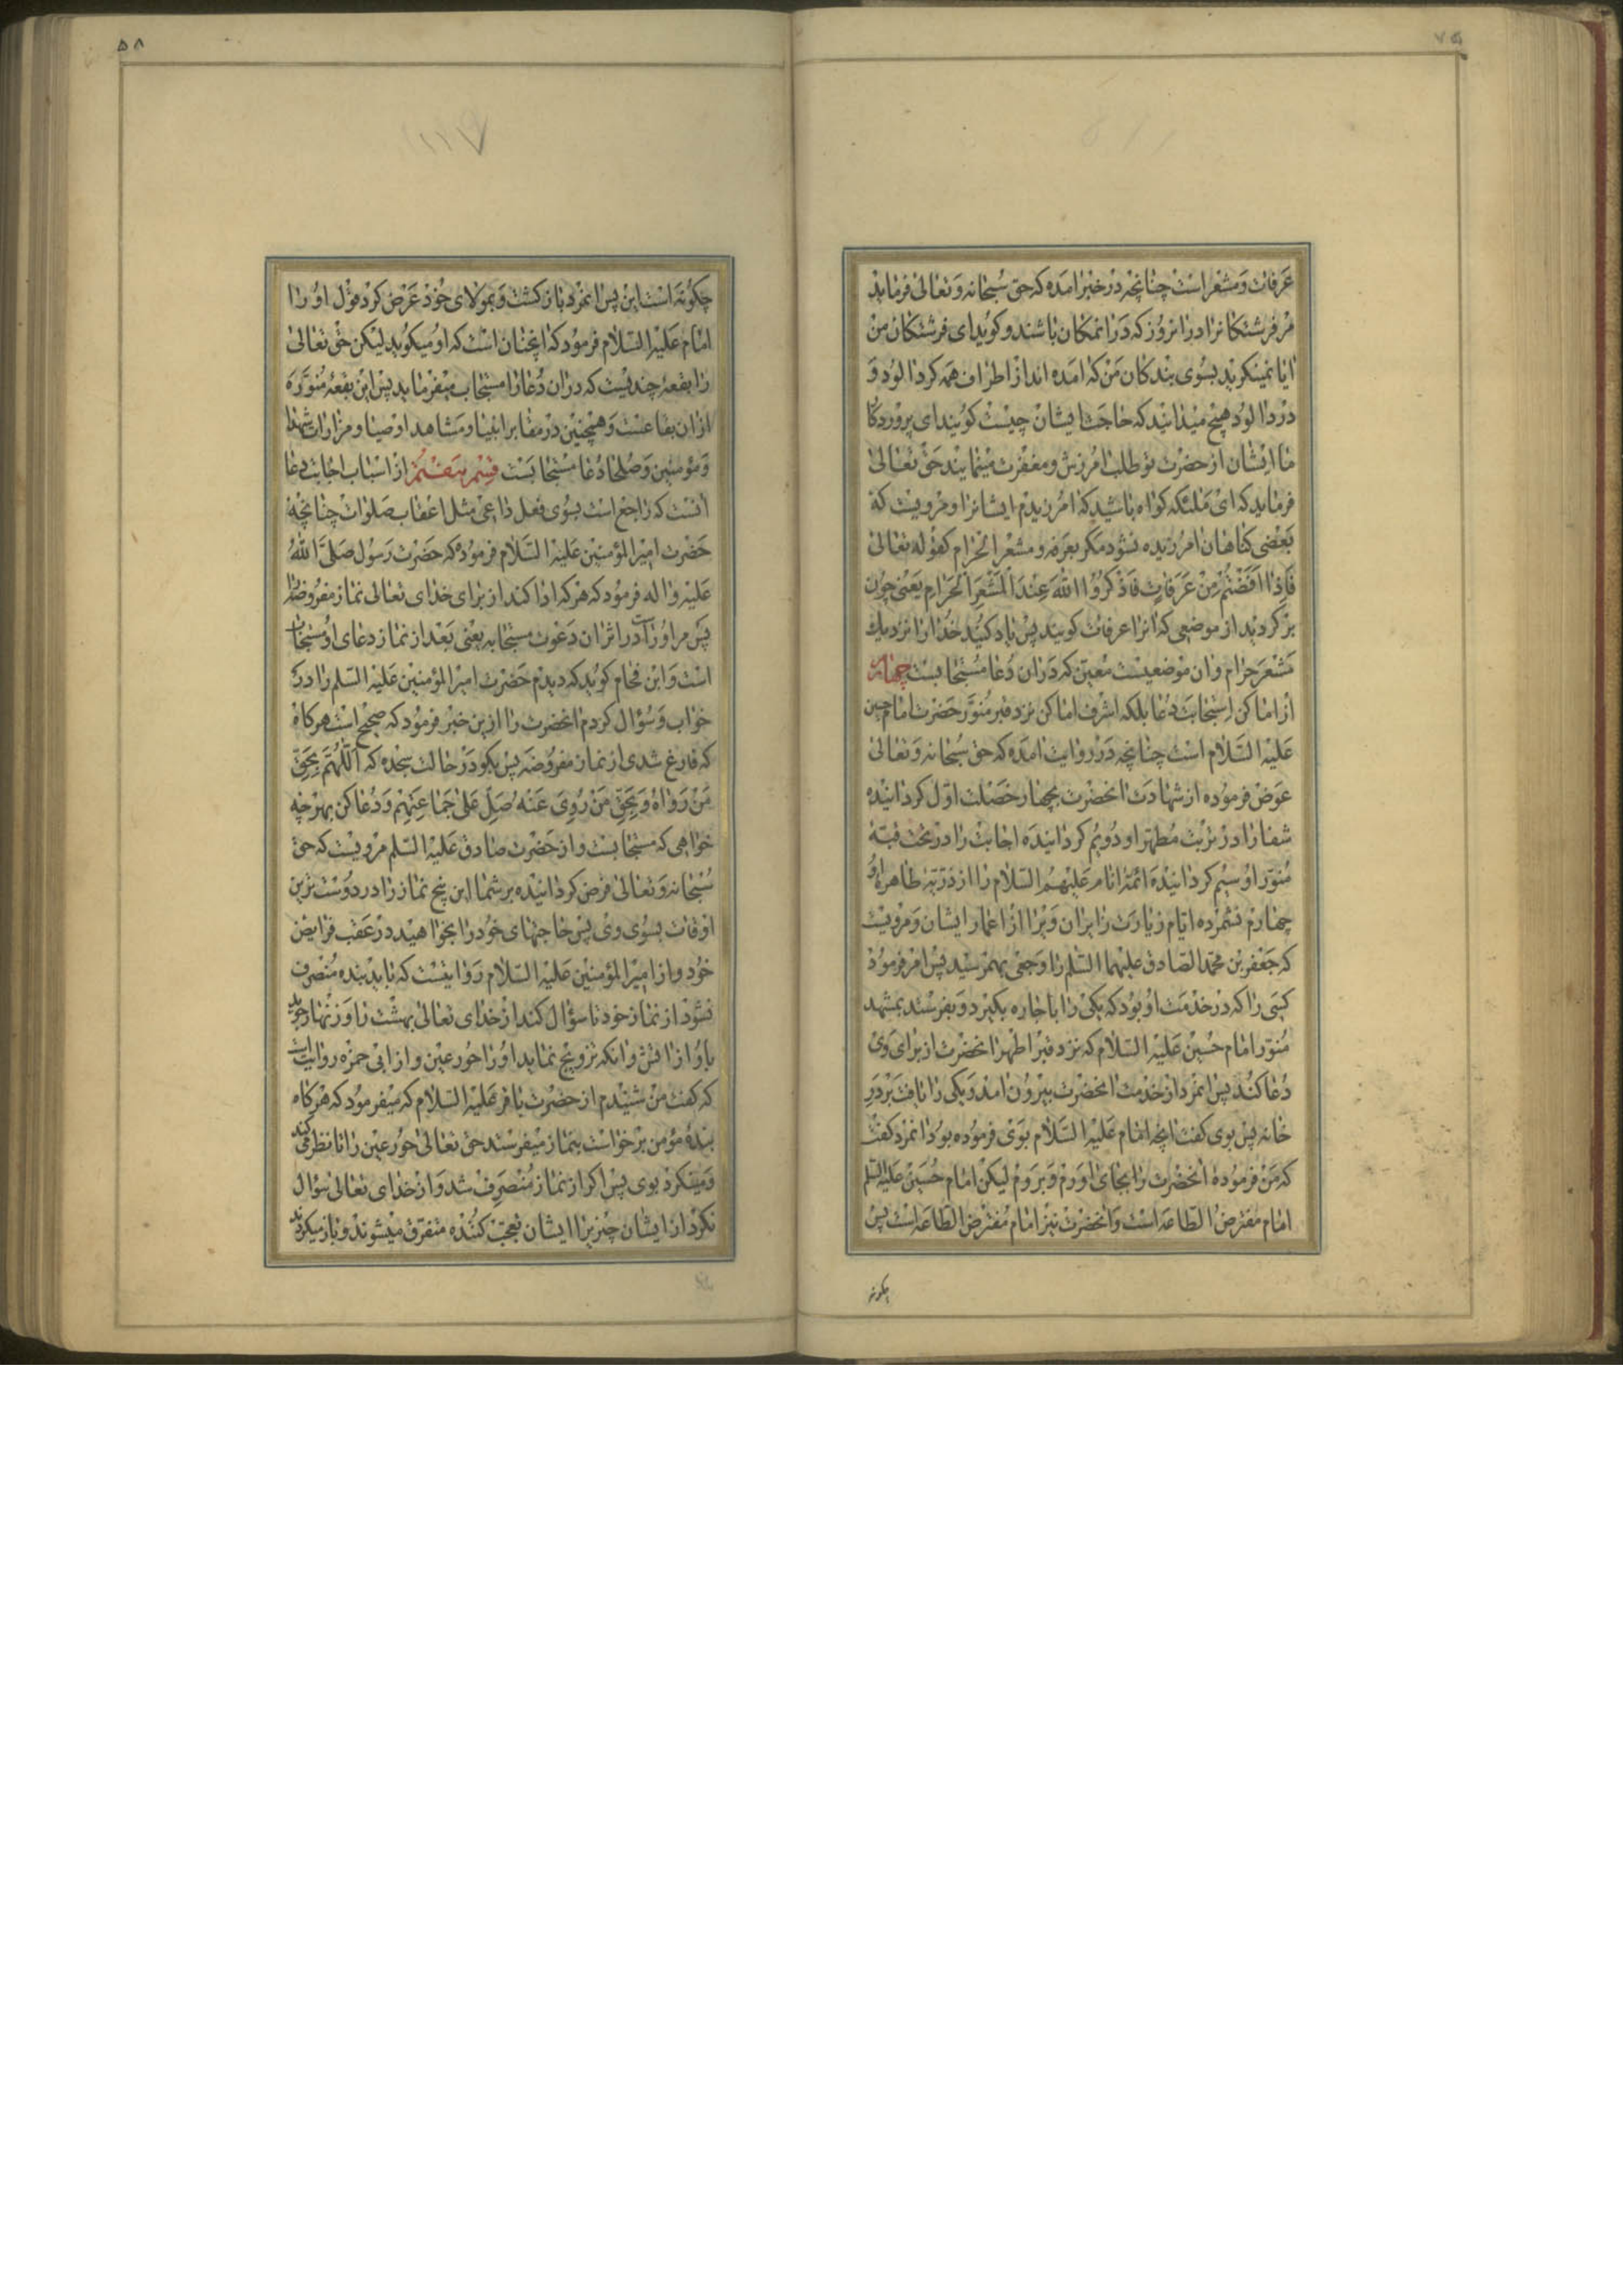 ۵۷
عرفات و مشعر است چنانچه در خبر امده که حق سبحانه و تعالی فرماید
مر فرشتکانرا در انروز که در انمکان باشند و کوید ای فرشتکان من
ایا نمینکرید بسوی بندکان من که امده اند از اطراف همه کرد الود و
درد الود هیچ میدانید که حاجت ایشان چیست کویند ای پروردکا
ما ایشان از حضرت تو طلب امرزش و مغفرت مینمایند حق تعالی
فرماید که ای ملئکه کواه باشید که امرزیدم ایشانرا و مرویست که
بعضی کناهان امرزیده نشود مکر بعرفه و مشعر الحرام کقوله تعالی
فَاِذا اَفَضْتُمْ مِنْ عَرَفاتٍ فَاذْكُرُوُا اللّهَ عِنْدَ الْمَشْعَرِ الْحَرامِ یعنی چون
برکردید از موضعی که انرا عرفات کویند پس یاد کنید خدا را نزدیک
مشعر حرام و ان موضعیست معین که در ان دعا مستجابست چهارم
از اماکن استجابت دعا بلکه اشرف اماکن نزد قبر منور حضرت امام حسین
علیه السلام است چنانچه در روایت امده که حق سبحانه و تعالی
عوض فرموده از شهادت انحضرت بچهار خصلت اول کردانیده
شفا را در تربت مطهر او دویم کردانیده اجابت را در تحت قبه
منور او سیم کردانیده ائمه انام علیهم السلام را از ذریه طاهره او
چهارم نشمرده ایام زیارت زایران ویرا از اعمار ایشان و مرویست
که جعفر بن محمد الصادق علیهما السلم را وجعی بهمرسید پس امر فرمود
کسی را که در خدمت او بود که یکی را باجاره بکیرد و بفرستد بمشهد
منور امام حسین علیه السلام که نزد قبر اطهر انحضرت از برای وی
دعا کند پس انمرد از خدمت انحضرت بیرون امد و یکی را یافت بر در
خانه پس بوی کفت انچه امام علیه السلام بوی فرموده بود انمرد کفت
که من فرموده انحضرت را بجای اورم و بروم لیکن امام حسین علیه السلم
امام مفترض الطاعه است و انحضرت نیز امام مفترض الطاعه است پس
چکونه
۵۸
چکونه است این پس انمرد بازکشت و بمولای خود عرض کرد قول او را
امام علیه السلام فرمود که انچنان است که او میکوید لیکن حق تعالی
را بقعه چندیست که در ان دعا را مستجاب میفرماید پس این بقعه منوره
از ان بقاعست و همچنین در مقابر انبیا و مشاهد اوصیا و مزارات شهدا
و مؤمنین و صلحا دعا مستجابست قسم هفتم از اسباب اجابت دعا
انست که راجع است بسوی فعل داعی مثل اعقاب صلوات چنانچه
حضرت امیر المؤمنین علیه السلام فرموده که حضرت رسول صلی الله
علیه واله فرمود که هر که ادا کند از برای خدای تعالی نماز مفروضه
پس مر او راست در اثر ان دعوت مستجابه یعنی بعد از نماز دعای او مستجاب
است و ابن فحام کوید که دیدم حضرت امیر المؤمنین علیه السلم را در
خواب و سؤال کردم انحضرت را از این خبر فرمود که صحیح است هر کاه
که فارغ شدی از نماز مفروضه پس بکو در حالت سجده که اَللّهُمَّ بِحَقِّ
مَنْ رَواهُ وَ بِحَقِّ مَنْ رُوِیَ عَنْهُ صَلِّ عَلی جَماعَتِهِمْ و دعا کن بهرچه
خواهی که مستجابست و از حضرت صادق علیه السلم مرویست که حق
سبحانه و تعالی فرض کردانیده بر شما این پنج نماز را در دوست ترین
اوقات بسوی وی پس حاجتهای خود را بخواهید در عقب فرایض
خود و از امیر المؤمنین علیه السلام روایتست که باید بنده منصرف
نشود از نماز خود تا سؤال کند از خدای تعالی بهشت را و زنهار جوید
باو از اتش و انکه تزویج نماید او را حور عین و از ابی حمزه روایت است
که کفت من شنیدم از حضرت باقر علیه السلام که میفرمود که هرکاه
بنده مؤمن برخواست بنماز میفرستد حق تعالی حور عین را تا نظر می کند
و مینکرد بوی پس اکر از نماز منصرف شد و از خدای تعالی سؤال
نکرد از ایشان چیزیرا ایشان تعجب کننده متفرق میشوند و باز میکردند